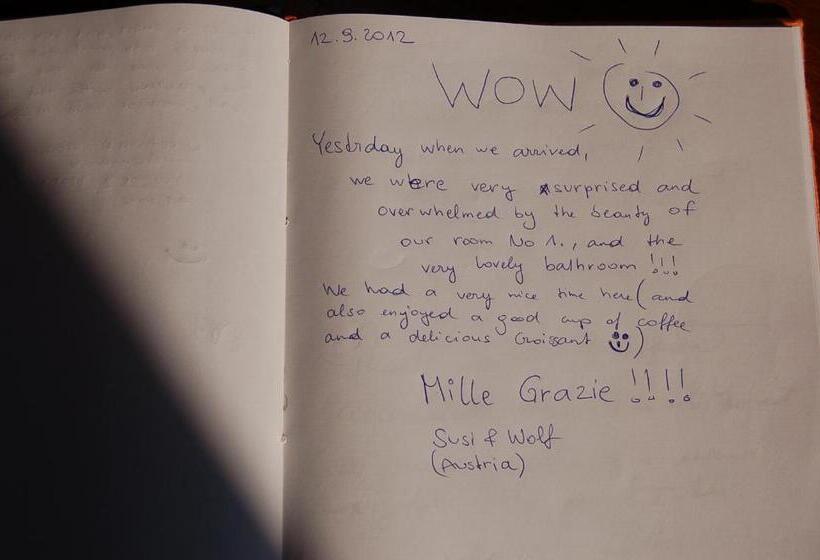 12.9.2012
WOW
Yestrday when we arrived,
we were very surprised and
overwhelmed by the beauty of
our room No 1., and the
very lovely bathroom !!!
We had a very nice time here (and
also enjoyed a good cup of coffee
and a delicious Croissant )
Mille Grazie !!!!
Susi & Wolf
(Austria)